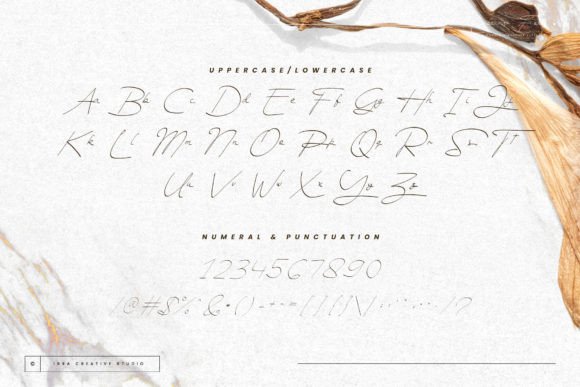 UPPERCASE/LOWERCASE
Aa Bb Cc Dd Ee Ff Gg Hh Ii Jj
Kk Ll Mm Nn Oo Pp Qq Rr Ss Tt
Uu Vv Ww Xx Yy Zz
NUMERAL & PUNCTUATION
1234567890
© IBRA CREATIVE STUDIO